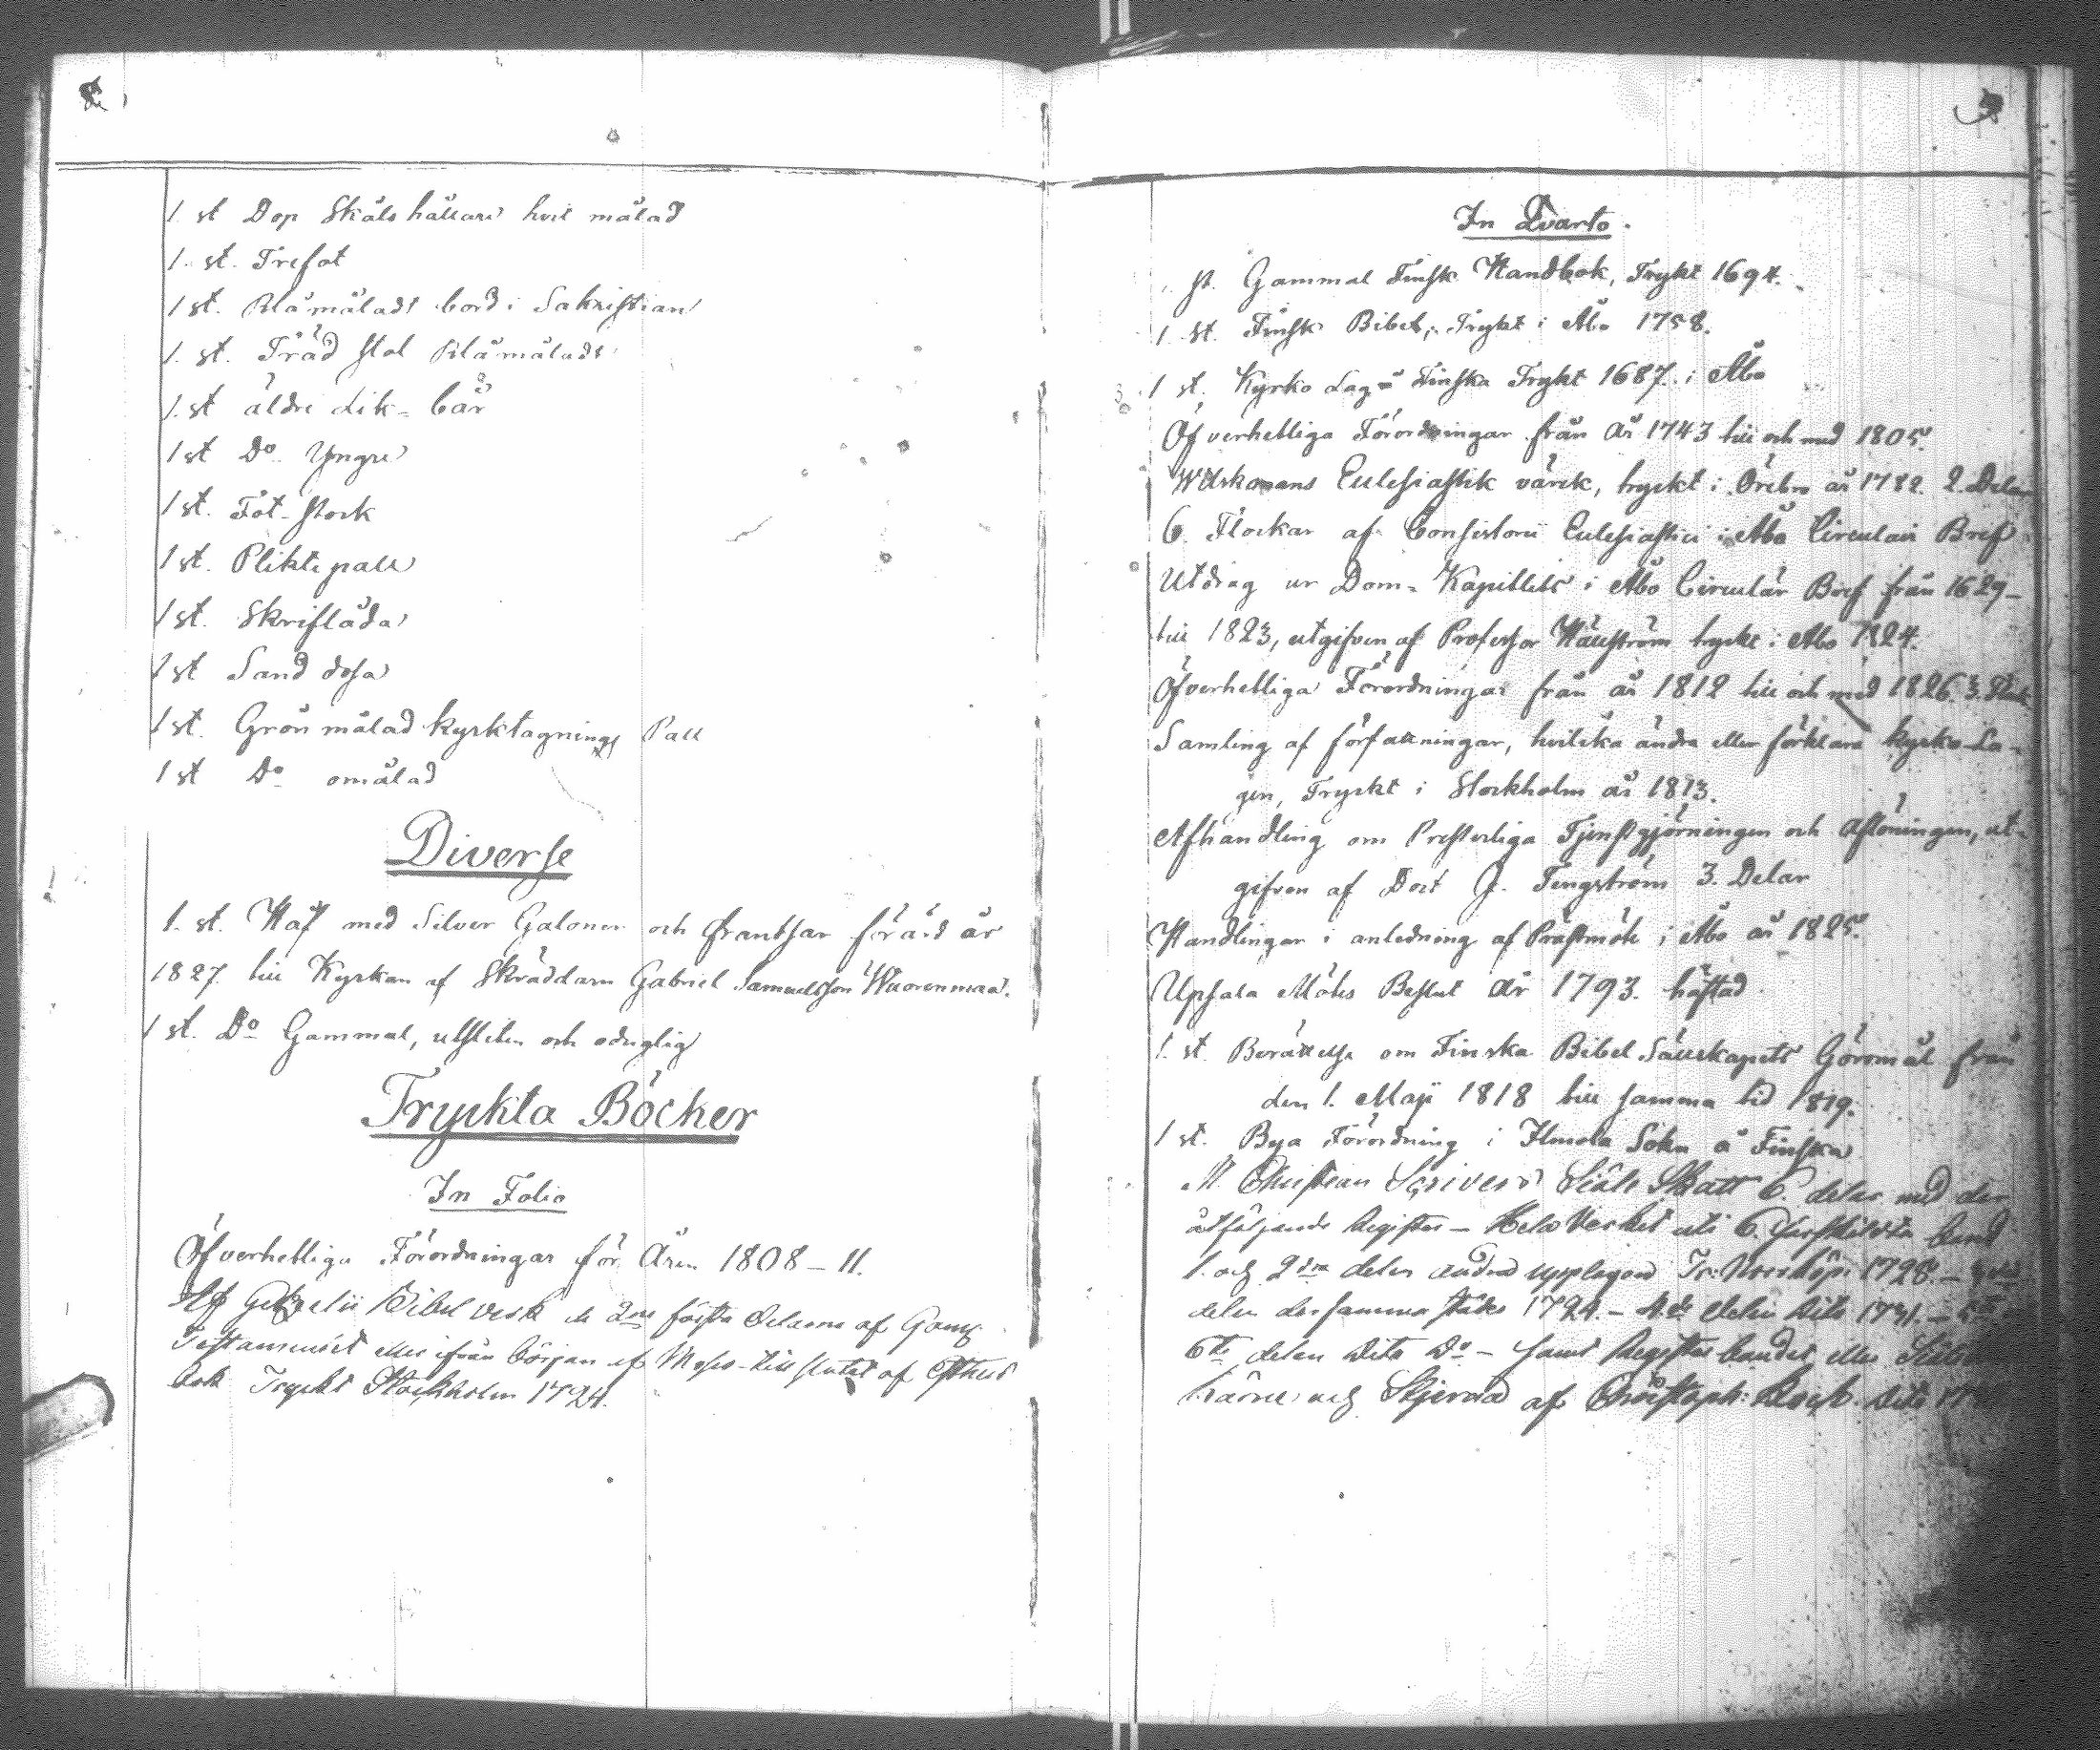 1. st Dop Skåls hållare hvit målad
1. st. Trefot
1 st. Blåmåladt bord i Sakristian
1. st. Träd stol Blåmålads
1. st äldre Lik-bår
1 st Do Yngre
1 st. Fot-stock
1 st. Pliktepall
1 st. Skriflåda
1 st Sand dosa
1 st. Grön målad kyrktagnings Pall
1 st Do omålad
Diverse
1. st. Håf med Silver Galoner och frantsar förärd år
1827. till Kyrkan af Skräddarn Gabriel Samuelsson Wuorenmaa.
1 st. Do Gammal, utsliten och oduglig
Tryckta Böcker
In Folio
Öfverhetliga Förordningar för Åren 1808–11.
Af Gezelii Bibel verk de 2ne första delarne af Gamla
Testamentet eller ifrån början af Mose till slutet af Esthers
bok Tryckt Stockholm 1724.
In Qvarto.
st. Gammal Finsk Handbok, Trykt 1694.
1 st. Finsk Bibel, Trykt i Åbo 1758.
1 st. Kyrko Lag å Finska Trykt 1687. i Åbo
Öfverhetliga Förordningar från år 1743 till och med 1805.
Wilskmans Eclesiastik värck, tryckt i Örebro år 1782. 2. Delar
6. Flockar af Consistorii Eclesiastici i Åbo Circulair Bref
Utdrag ur Dom-Kapitlets i Åbo Circulär Bref från 1629–
till 1823, utgifven af Professor Hällström tryckt i Åbo 1824.
Öfverhetliga Förordningar från år 1812 till och med 1826. 3.
Samling af författningar, hvilcka ändra eller förklara kyrko-La-
gen, Tryckt i Stockholm år 1813.
Afhandling om Presterliga Tjenstgjörningen och Aflöningen, ut-
gifven af Doct J. Tengström 3. Delar
Handlingar i anledning af Prästmöte i Åbo år 1825.
Upsala Mötes Beslut år 1793. häftad
1. st. Berättelse om Finska Bibel Sällskapets Göromål från
den 1. Maji 1818 till samma tid 1819.
1 st. Bya Förordning i Ilmola Sokn å Finska
M. Christian Scrivers Siäle Skatt 6. delar med der
åtföljande Register – Hela Verket uti 6. särskildta band
1. och 2dra delen andra upplagan Tr. Norrköp. 1728. –
delen dersammastädes 1724. – 4.de delen dito 1731. –
6te delen dito Do – samt Register bandet eller
Kärna och Stjerna af Christoph: dito